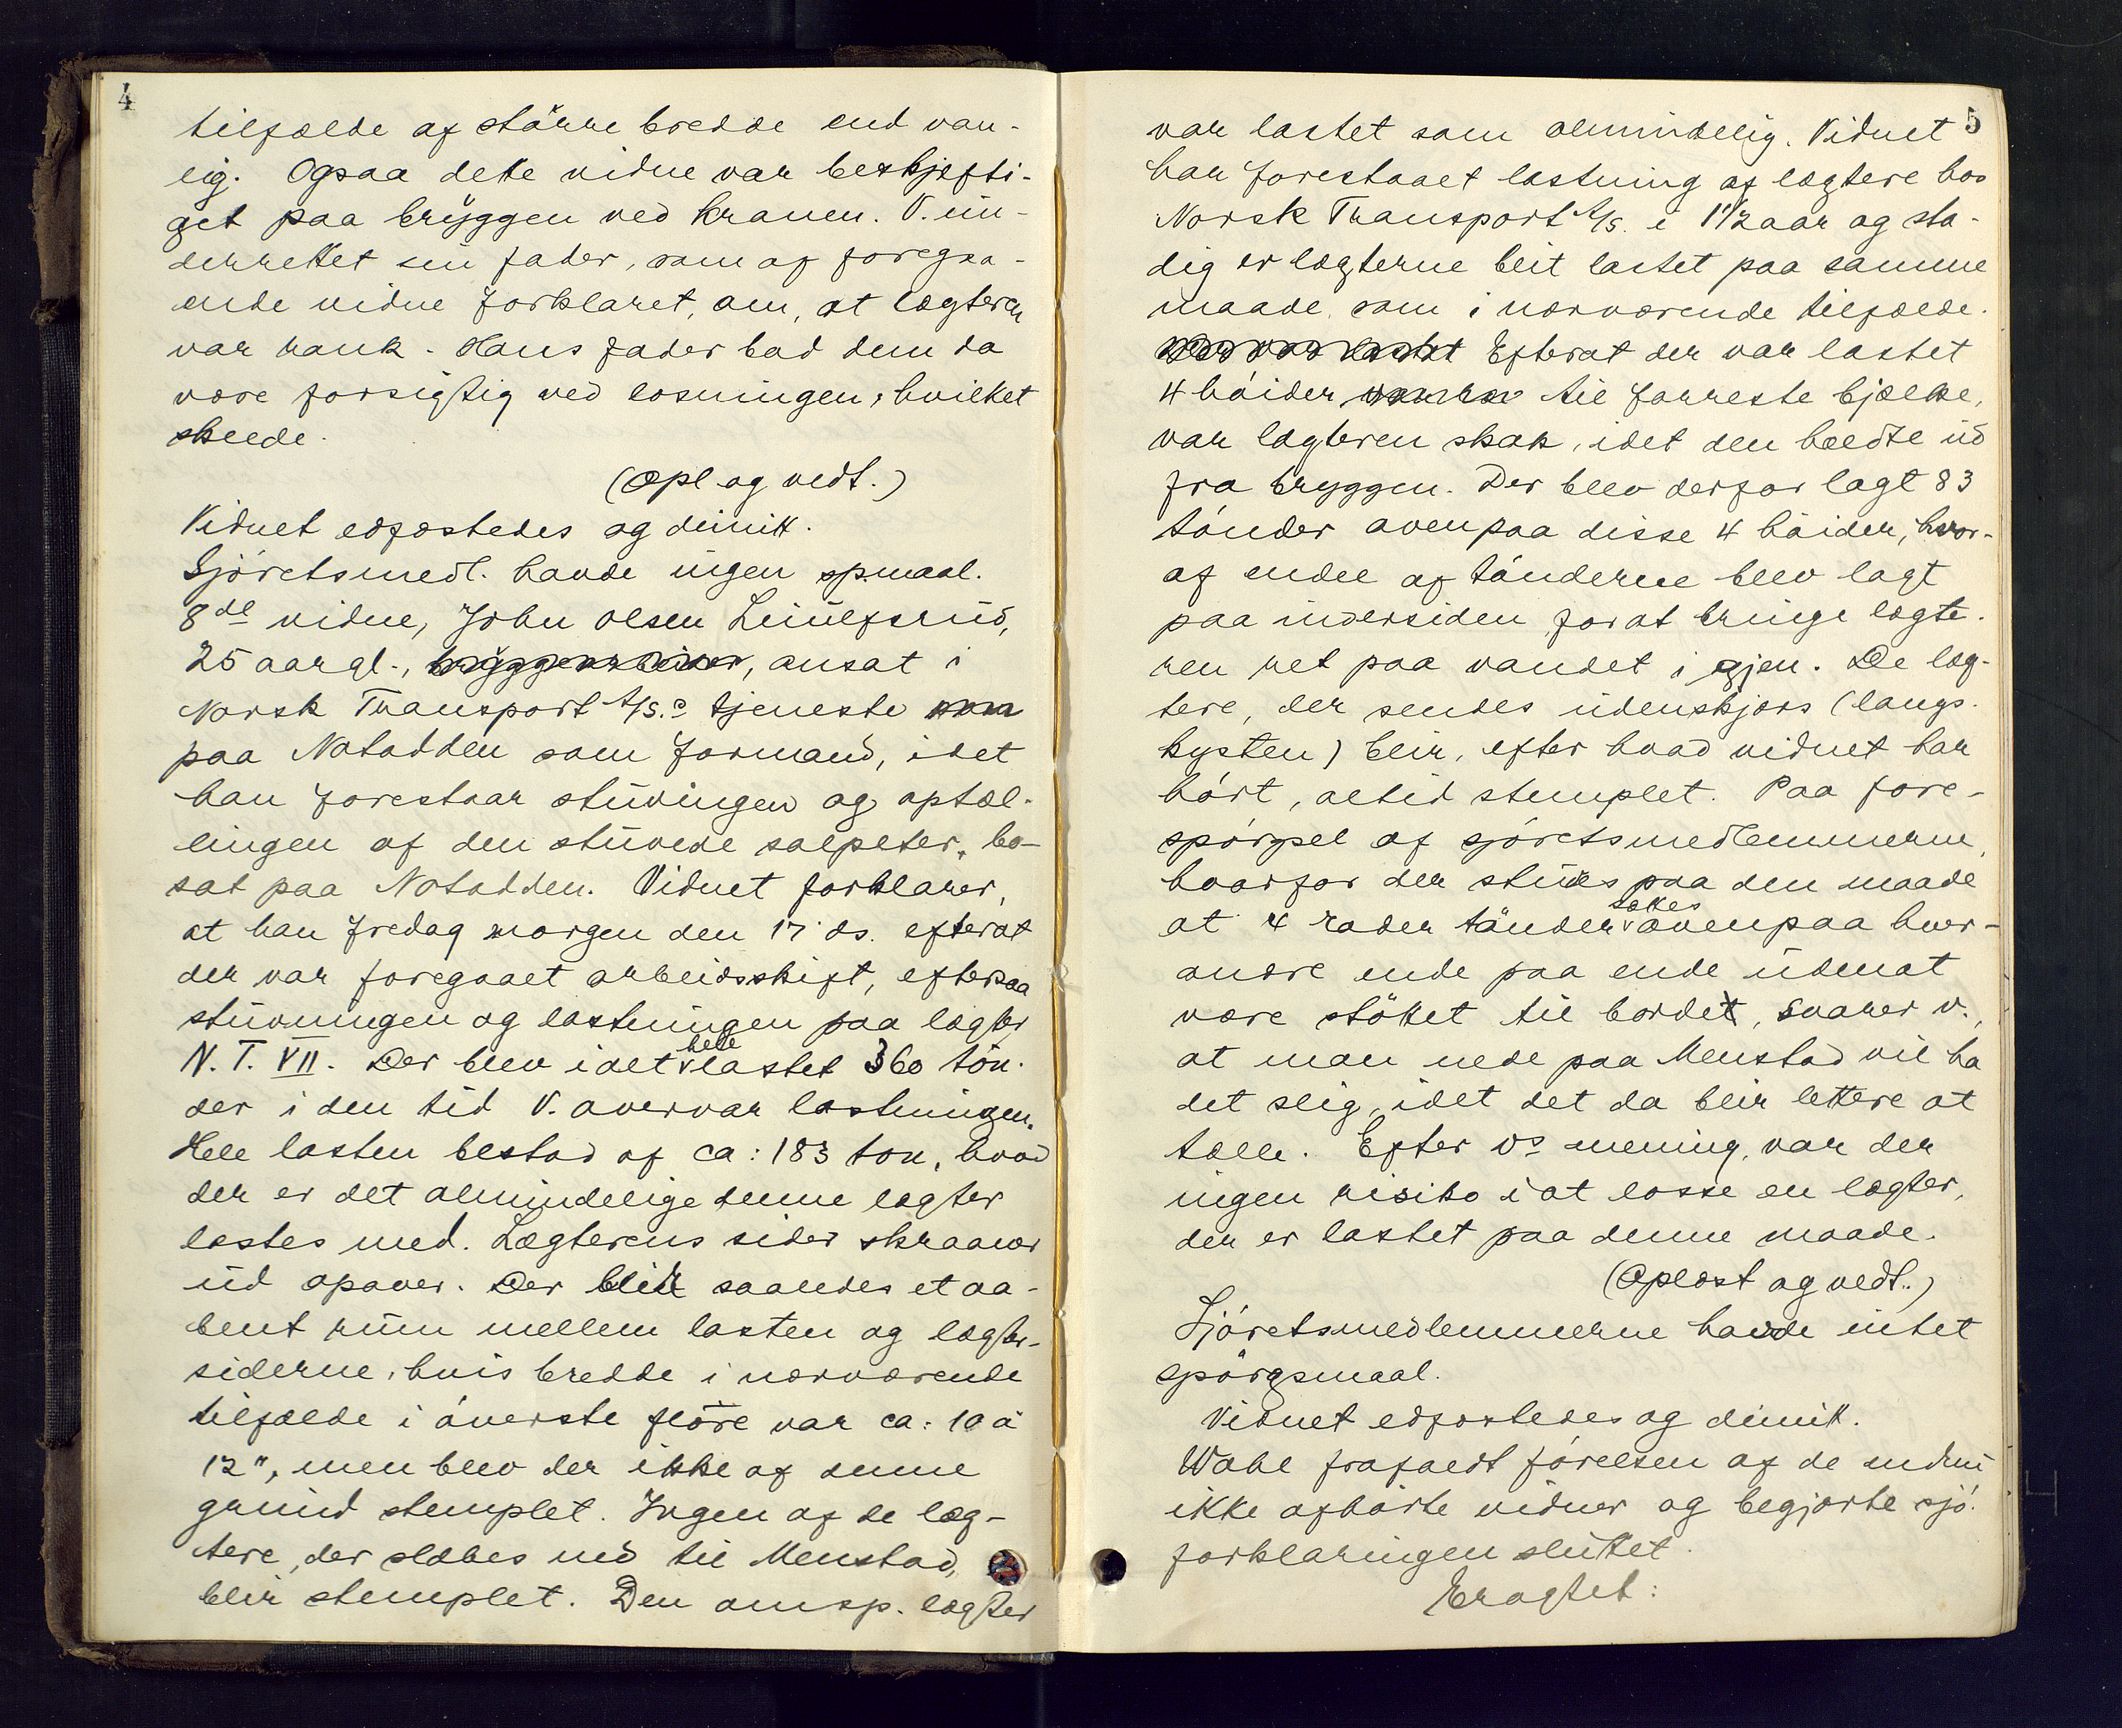 4
tilfælde af större bredde end van-
lig. Ogsaa dette vidne var beskjæfti-
get paa bryggen ved kranen. V. un-
derrettet sin fader, som af foregaa-
ende vidne forklaret, om, at lægteren
var rank. Hans fader bad dem da
være forsigtig ved losningen, hvilket
skeede.
(Opl. og vedt.)
Vidnet edfæstedes og dimitt.
Sjöretsmedl. havde ingen spmaal.
8de vidne, John Olsen
25 aar gl., bryggearbeider, ansat i
Norsk Transport A/S.s tjeneste
paa Notodden som formand, idet
han forestaar stuvingen og optæl-
lingen af den stuvede salpeter, bo-
sat paa Notodden. Vidnet forklarer,
at han fredag morgen den 17 ds. efterat
der var foregaaet arbeidsskift, eftersaa
stuvningen og lastningen paa lægter
N. T. VII. Der blev i det hele lastet 360 tön-
der i den tid V. overvar lastningen.
Hele lasten bestod af ca: 183 ton, hvad
der er det almindelige denne lægter
lastes med. Lægterens sider skraaner
ud opover. Der blir saaledes et aa-
bent rum mellem lasten og lægter-
siderne, hvis bredde i nærværende
tilfælde i överste flöre var ca: 10 à
12", men blev der ikke af denne
grund stemplet. Ingen af de læg-
tere, der slæbes ned til Menstad,
blir stemplet. Den omsp. lægter
5
var lastet som almindelig. Vidnet
har forestaaet lastning af lægtere hos
Norsk Transport A/S. i 1 1/2 aar og sta-
dig er lægterne blit lastet paa samme
maade som i nærværende tilfælde.
Der var lastet Efterat der var lastet
4 höider til forreste bjælke,
var lægteren skak, idet den hældte ud
fra bryggen. Der blev derfor lagt 83
tönder ovenpaa disse 4 höider, hvor-
af endel af tönderne blev lagt
paa indersiden for at bringe lægte-
ren ret paa vandet igjen. De læg-
tere, der sendes udenskjærs (langs-
kysten) blir, efter hvad vidnet har
hört, altid stemplet. Paa fore-
spörgsel af sjöretsmedlemmerne,
hvorfor der stuves paa den maade
at 4 rader tönder sættes ovenpaa hver-
andre ende paa ende uden at
være stöttet til bordet, svarer v.,
at man nede paa Menstad vil ha
det slig, idet det da blir lettere at
tælle. Efter vs mening, var der
ingen risiko i at losse en lægter,
der er lastet paa denne maade.
(Oplæst og vedt.)
Sjöretsmedlemmerne havde intet
spörgsmaal.
Vidnet edfæstedes og dimitt.
Wahl frafaldt förelsen af de endnu
ikke afhörte vidner og begjærte sjö-
forklaringen sluttet.
Eragtet: